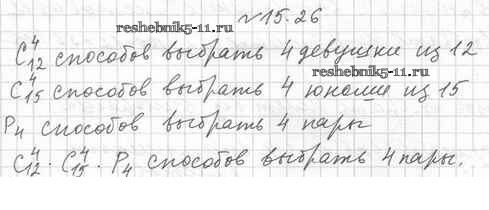 №15.26
reshebnik5-11.ru
C⁴₁₂ способов выбрать 4 девушки из 12
reshebnik5-11.ru
C⁴₁₅ способов выбрать 4 юноши из 15
P₄ способов выбрать 4 пары
C⁴₁₂ · C⁴₁₅ · P₄ способов выбрать 4 пары.